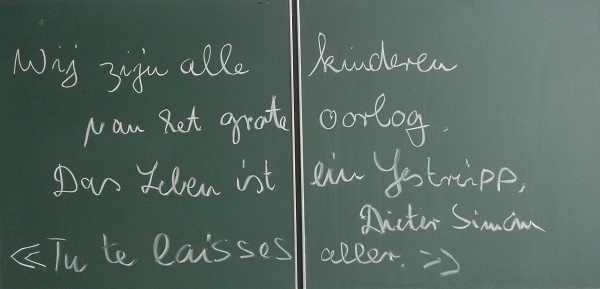 Wij zijn alle kinderen
van het grote oorlog.
Das Leben ist ein Gestrüpp,
Dieter Simon
«Tu te laisses aller.»